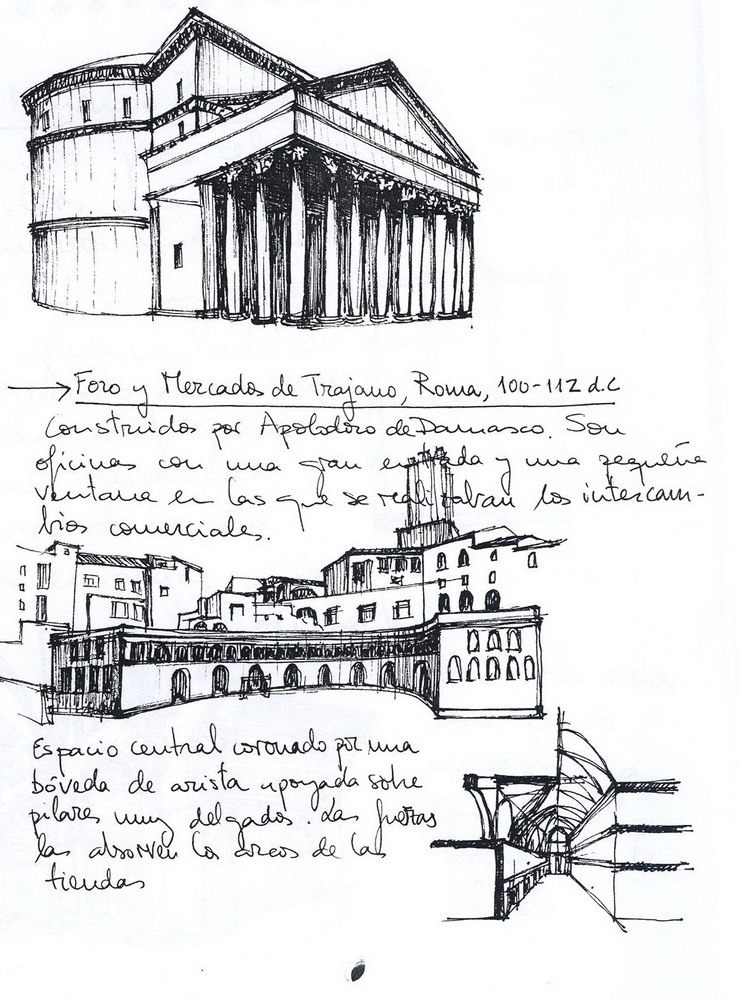 Foro y Mercados de Trajano, Roma, 100-112 d.C
Construidos por Apolodoro de Damasco. Son
oficinas con una gran entrada y una pequeña
ventana en las que se realizaban los intercam-
bios comerciales.
Espacio central coronado por una
bóveda de arista apoyada sobre
pilares muy delgados. Las fuerzas
las absorven los arcos de las
tiendas